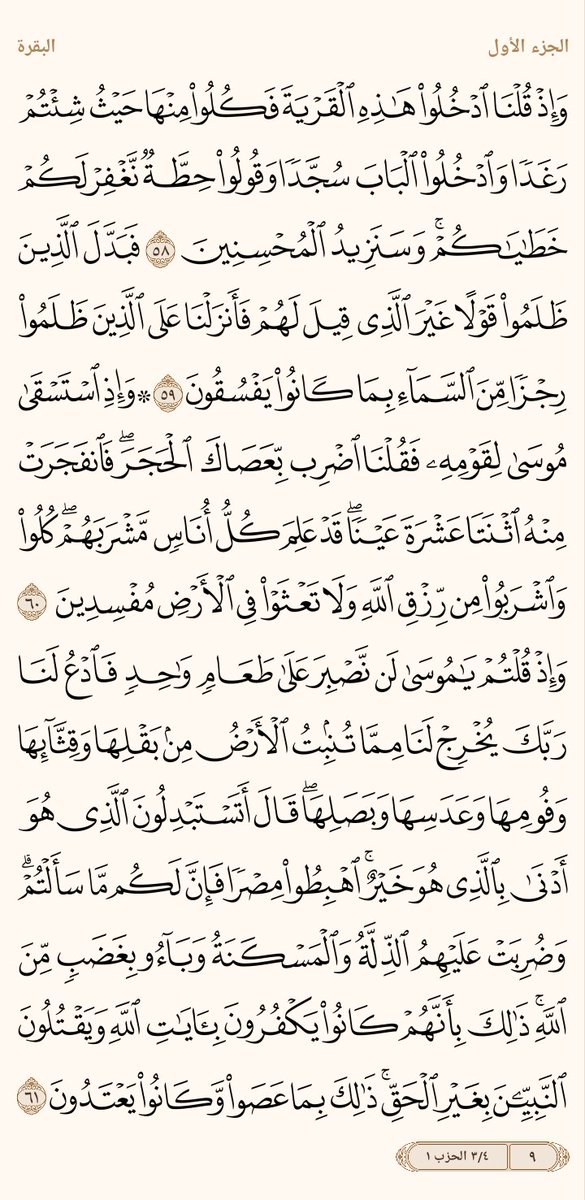 الجزء الأول
البقرة
وَإِذۡ قُلۡنَا ٱدۡخُلُواْ هَٰذِهِ ٱلۡقَرۡيَةَ فَكُلُواْ مِنۡهَا حَيۡثُ شِئۡتُمۡ
رَغَدٗا وَٱدۡخُلُواْ ٱلۡبَابَ سُجَّدٗا وَقُولُواْ حِطَّةٞ نَّغۡفِرۡ لَكُمۡ
خَطَٰيَٰكُمۡۚ وَسَنَزِيدُ ٱلۡمُحۡسِنِينَ ٥٨ فَبَدَّلَ ٱلَّذِينَ
ظَلَمُواْ قَوۡلًا غَيۡرَ ٱلَّذِي قِيلَ لَهُمۡ فَأَنزَلۡنَا عَلَى ٱلَّذِينَ ظَلَمُواْ
رِجۡزٗا مِّنَ ٱلسَّمَآءِ بِمَا كَانُواْ يَفۡسُقُونَ ٥٩ ۞ وَإِذِ ٱسۡتَسۡقَىٰ
مُوسَىٰ لِقَوۡمِهِۦ فَقُلۡنَا ٱضۡرِب بِّعَصَاكَ ٱلۡحَجَرَۖ فَٱنفَجَرَتۡ
مِنۡهُ ٱثۡنَتَا عَشۡرَةَ عَيۡنٗاۖ قَدۡ عَلِمَ كُلُّ أُنَاسٖ مَّشۡرَبَهُمۡۖ كُلُواْ
وَٱشۡرَبُواْ مِن رِّزۡقِ ٱللَّهِ وَلَا تَعۡثَوۡاْ فِي ٱلۡأَرۡضِ مُفۡسِدِينَ ٦٠
وَإِذۡ قُلۡتُمۡ يَٰمُوسَىٰ لَن نَّصۡبِرَ عَلَىٰ طَعَامٖ وَٰحِدٖ فَٱدۡعُ لَنَا
رَبَّكَ يُخۡرِجۡ لَنَا مِمَّا تُنۢبِتُ ٱلۡأَرۡضُ مِنۢ بَقۡلِهَا وَقِثَّآئِهَا
وَفُومِهَا وَعَدَسِهَا وَبَصَلِهَاۖ قَالَ أَتَسۡتَبۡدِلُونَ ٱلَّذِي هُوَ
أَدۡنَىٰ بِٱلَّذِي هُوَ خَيۡرٌۚ ٱهۡبِطُواْ مِصۡرٗا فَإِنَّ لَكُم مَّا سَأَلۡتُمۡۗ
وَضُرِبَتۡ عَلَيۡهِمُ ٱلذِّلَّةُ وَٱلۡمَسۡكَنَةُ وَبَآءُو بِغَضَبٖ مِّنَ
ٱللَّهِۚ ذَٰلِكَ بِأَنَّهُمۡ كَانُواْ يَكۡفُرُونَ بِـَٔايَٰتِ ٱللَّهِ وَيَقۡتُلُونَ
ٱلنَّبِيِّـۧنَ بِغَيۡرِ ٱلۡحَقِّۚ ذَٰلِكَ بِمَا عَصَواْ وَّكَانُواْ يَعۡتَدُونَ ٦١
٩
٣/٤ الحزب ١